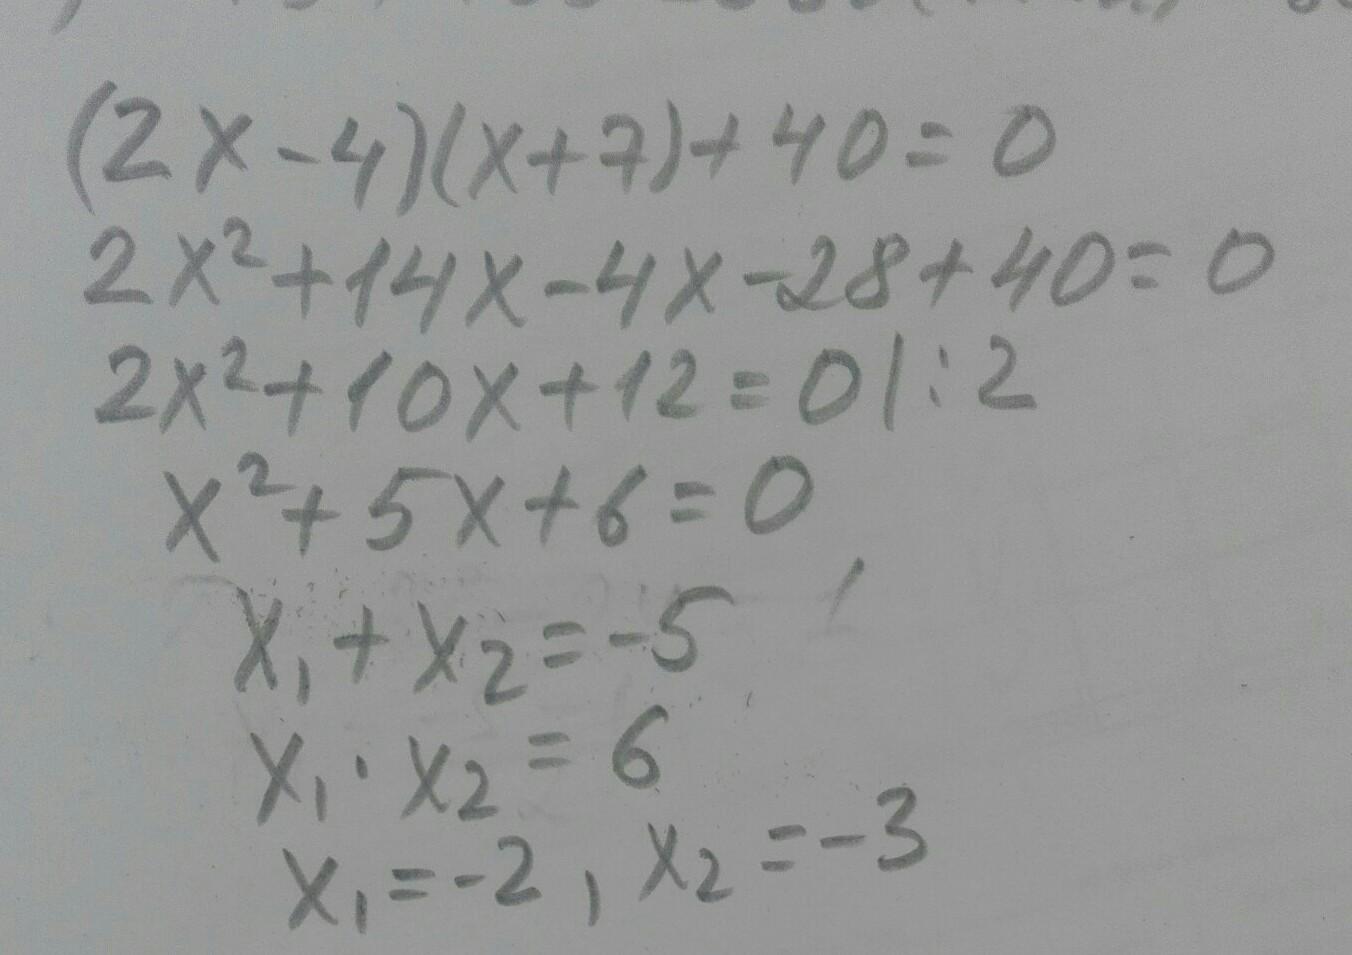 (2x-4)(x+7)+40=0
2x²+14x-4x-28+40=0
2x²+10x+12=0 |:2
x²+5x+6=0
x₁+x₂=-5
x₁·x₂=6
x₁=-2, x₂=-3